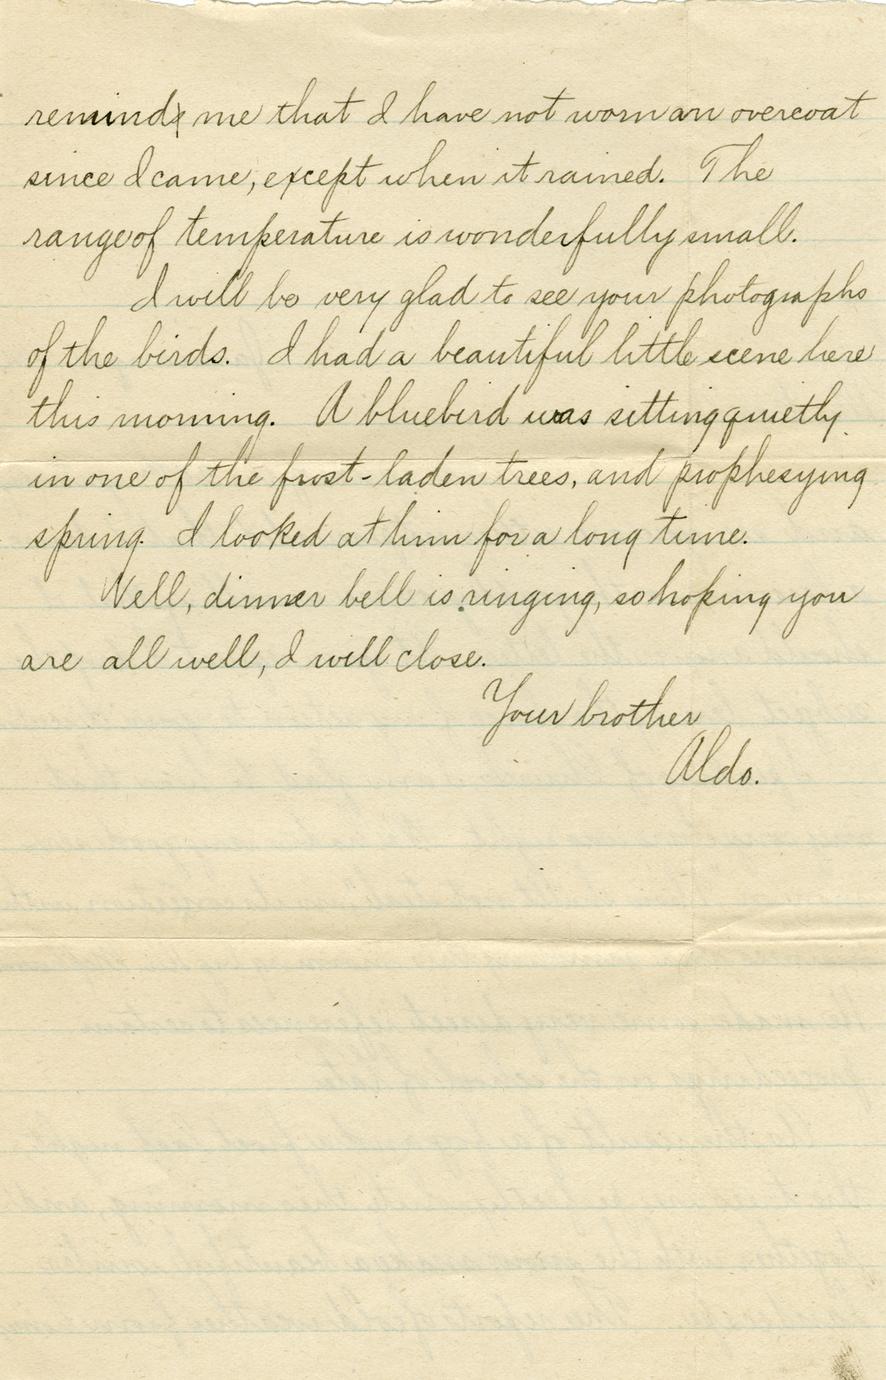 remind me that I have not worn an overcoat
since I came, except when it rained. The
range of temperature is wonderfully small.
I will be very glad to see your photographs
of the birds. I had a beautiful little scene here
this morning. A bluebird was sitting quietly
in one of the frost-laden trees, and prophesying
spring. I looked at him for a long time.
Well, dinner bell is ringing, so hoping you
are all well, I will close.
Your brother
Aldo.